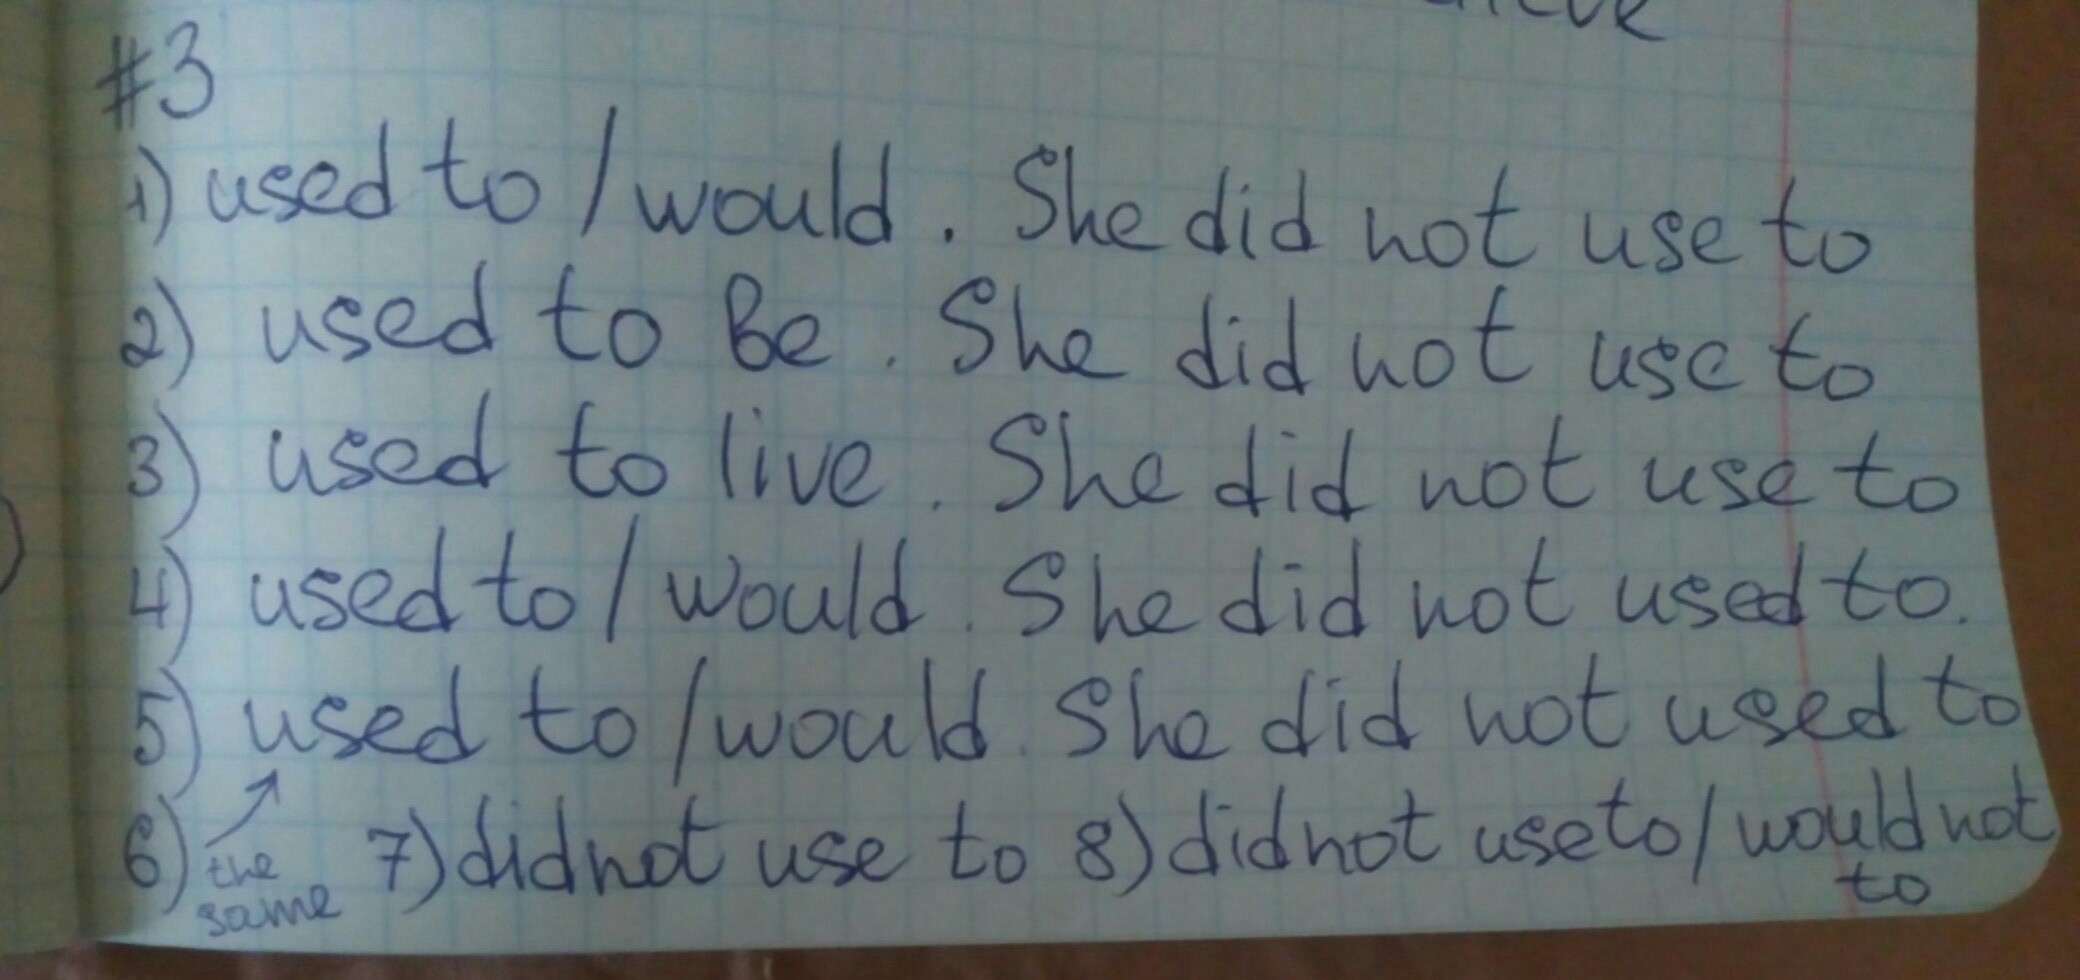 #3
1) used to / would. She did not use to
2) used to Be. She did not use to
3) used to live. She did not use to
4) used to / would. She did not used to.
5) used to / would. She did not used to
6) the same 7) did not use to 8) did not use to / would not to